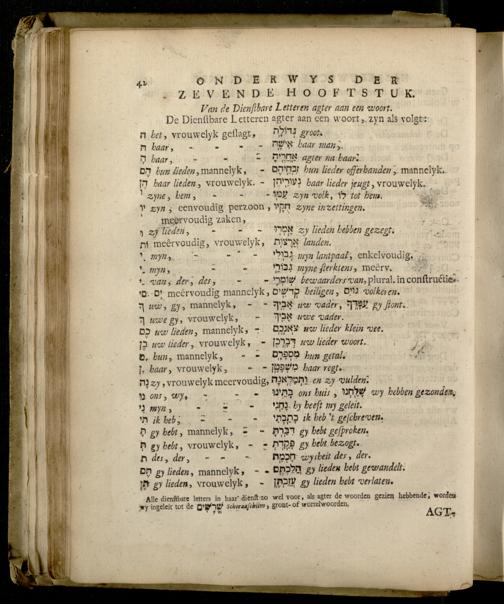 42 ONDERWYS DER
ZEVENDE HOOFTSTUK.
Van de Dienſtbare Letteren agter aan een woort.
De Dienſtbare Letteren agter aan een woort, zyn als volgt:
ה het, vrouwelyk geſlagt, גְּדוֹלָה groot.
ה haar, - - - - אִישָׁהּ haar man,
הָ haar, - - - אַחֲרֶיהָ agter na haar.
הֶם hun lieden, mannelyk, - זִבְחֵיהֶם hun lieder offerhanden, mannelyk.
הֶן haar lieden, vrouwelyk. - נְעוּרֵיהֶן haar lieder jeugt, vrouwelyk.
ו zyne, hem, - - - עַמּוֹ zyn volk, לוֹ tot hem.
יו zyn, eenvoudig perzoon, חֻקָּיו zyne inzettingen.
meervoudig zaken,
ו zy lieden, - - - אָמְרוּ zy lieden hebben gezegt.
וֹת meervoudig, vrouwelyk, אֲרָצוֹת landen.
י. myn, - - - - גְּבוּלִי myn lantpaal, enkelvoudig.
י. myn, - - - - גִּבּוֹרַי myne ſterktens, meerv.
י. van, der, des, - - שׁוֹמְרֵי bewaarders van, plural. in constructie.
ים meervoudig mannelyk, קְדֹשִׁים heiligen, גּוֹיִם volkeren.
ךָ uw, gy, mannelyk, - - אָבִיךָ uw vader, gy ſtont.
ךְ uwe gy, vrouwelyk, - אָבִיךְ uwe vader.
כֶם uw lieden, mannelyk, - צֹאנְכֶם uw lieder klein vee.
כֶן uw lieder, vrouwelyk, - דְּבַרְכֶן uw lieder woort.
ם. hun, mannelyk, - - מִסְפָּרָם hun getal.
ן. haar, vrouwelyk, - - מִשְׁפָּטָן haar regt.
נָה zy, vrouwelyk meervoudig, וַתְּמַלֶּאנָה en zy vulden.
נוּ ons, wy, - - - בָּתֵּינוּ ons huis, שָׁלַחְנוּ wy hebben gezonden.
נִי myn, - - - נָחַנִי hy heeft my geleit.
תִּי ik heb, - - - כָּתַבְתִּי ik heb 't geſchreven.
תָּ gy hebt, mannelyk, - - דִּבַּרְתָּ gy hebt geſproken.
תְּ gy hebt, vrouwelyk, - - פָּקַדְתְּ gy hebt bezogt.
ת des, der, - - - חָכְמַת wysheit des, der.
תֶּם gy lieden, mannelyk, - - הֲלַכְתֶּם gy lieden hebt gewandelt.
תֶּן gy lieden, vrouwelyk, - עֲזַבְתֶּן gy lieden hebt verlaten.
Alle dienſtbare letters in haar dienſt zo wel voor, als agter de woorden gezien hebbende, worden
wy ingeleit tot de שָׁרָשִׁים Schoraaſchiim, gront- of wortelwoorden.
AGT-